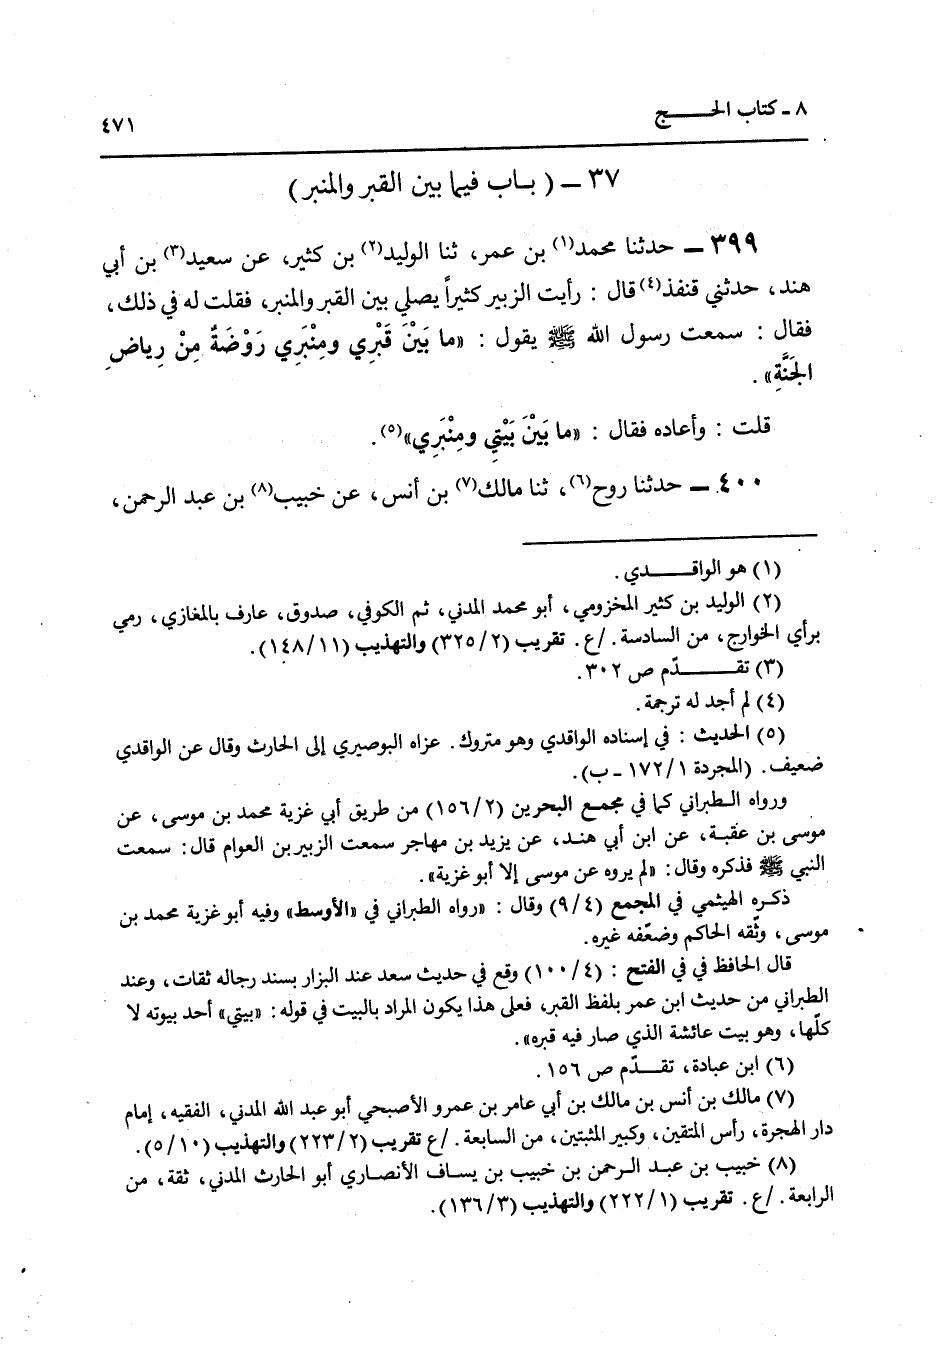 ٨ ـ كتاب الحـــــج
٤٧١
٣٧ ــ ( بـاب فيما بين القبر والمنبر )
٣٩٩ ــ حدثنا محمد(١) بن عمر، ثنا الوليد(٢) بن كثير، عن سعيد(٣) بن أبي
هند، حدثني قنفذ(٤) قال : رأيت الزبير كثيراً يصلي بين القبر والمنبر، فقلت له في ذلك،
فقال : سمعت رسول الله ﷺ يقول : «ما بَيْنَ قَبْرِي ومِنْبَرِي رَوْضَةٌ مِنْ رِياضِ
الجَنَّةِ» .
قلت : وأعاده فقال : «ما بَيْنَ بَيْتِي ومِنْبَرِي»(٥).
٤٠٠ ــ حدثنا روح(٦)، ثنا مالك(٧) بن أنس، عن خبيب(٨) بن عبد الرحمن،
(١) هو الواقـــــدي .
(٢) الوليد بن كثير المخزومي، أبو محمد المدني، ثم الكوفي، صدوق، عارف بالمغازي، رمي
برأي الخوارج، من السادسة . /ع . تقريب (٣٢٥/٢) والتهذيب (١٤٨/١١).
(٣) تقـــــــدّم ص ٣٠٢.
(٤) لم أجد له ترجمة .
(٥) الحديث : في إسناده الواقدي وهو متروك. عزاه البوصيري إلى الحارث وقال عن الواقدي
ضعيف . (المجردة ١٧٢/١ ـ ب).
ورواه الـطبراني كما في مجمع البحرين (١٥٦/٢) من طريق أبي غزية محمد بن موسى، عن
موسى بن عقبـة، عن ابن أبي هنـد، عن يزيد بن مهاجر سمعت الزبير بن العوام قال : سمعت
النبي ﷺ فذكره وقال : «لم يروه عن موسى إلا أبو غزية» .
ذكـره الهيثمي في المجمع (٩/٤) وقال : «رواه الطبراني في «الأوسط» وفيه أبو غزية محمد بن
موسى، وثّقه الحاكم وضعّفه غيره.
قال الحافظ في في الفتح : (١٠٠/٤) وقع في حديث سعد عند البزار بسند رجاله ثقات، وعند
الطبراني من حديث ابن عمر بلفظ القبر، فعلى هذا يكون المراد بالبيت في قوله : «بيتي» أحد بيوته لا
كلّها، وهو بيت عائشة الذي صار فيه قبره» .
(٦) ابن عبادة، تقـــدّم ص ١٥٦ .
(٧) مالك بن أنس بن مالك بن أبي عامر بن عمرو الأصبحي أبو عبد الله المدني، الفقيه، إمام
دار الهجرة، رأس المتقين، وكبير المثبتين، من السابعة . /ع تقريب (٢٢٣/٢) والتهذيب (٥/١٠).
(٨) خبيب بن عبـد الـرحمن بن خبيب بن يسـاف الأنصـاري أبو الحارث المدني، ثقة، من
الرابعة . /ع . تقريب (٢٢٢/١) والتهذيب (١٣٦/٣).